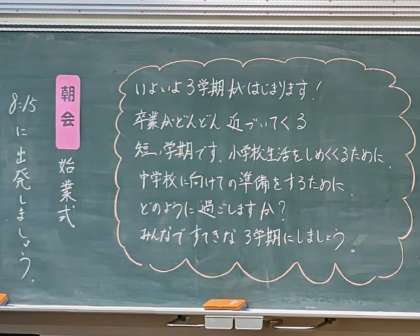 いよいよ3学期がはじまります!
卒業がどんどん近づいてくる
短い学期です。小学校生活をしめくくるために、
中学校に向けての準備をするために、
どのように過ごしますか?
みんなですてきな3学期にしましょう。
朝会
始業式
8:15に出発しましょう。